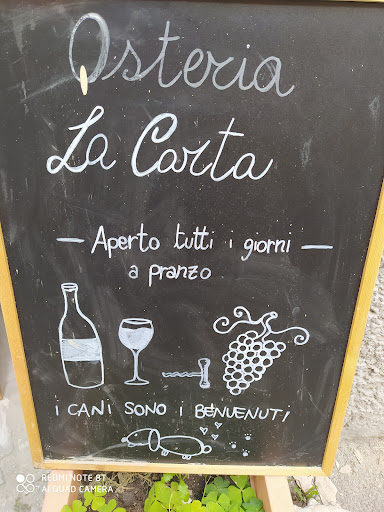 Osteria
La Carta
— Aperto tutti i giorni —
a pranzo
I CANI SONO I BENVENUTI
REDMI NOTE 8T
AI QUAD CAMERA